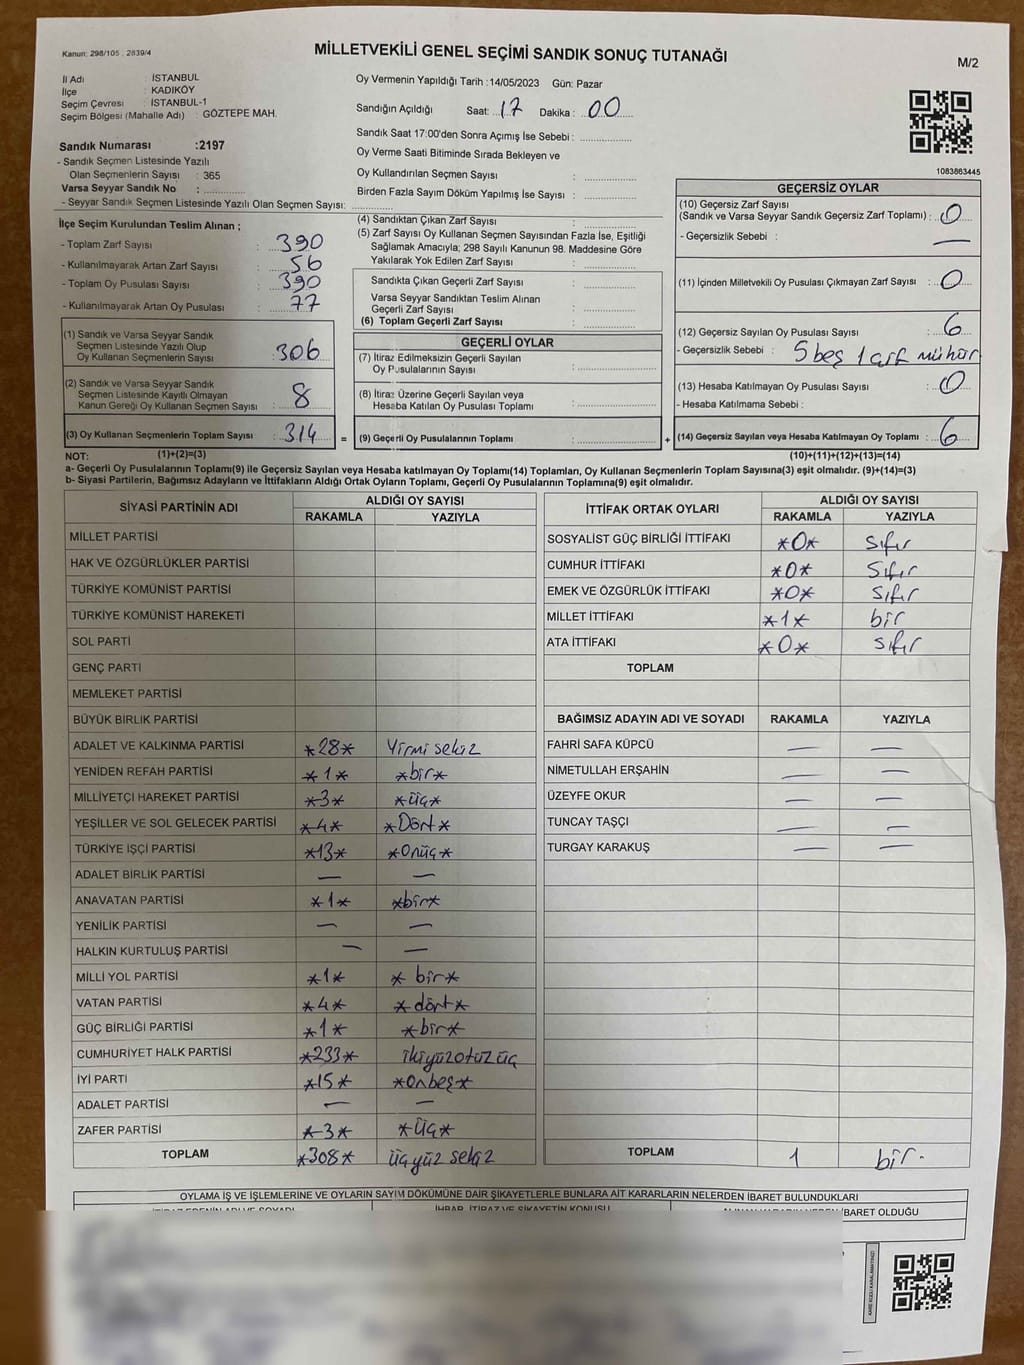 Kanun: 298/105 , 2839/4
MİLLETVEKİLİ GENEL SEÇİMİ SANDIK SONUÇ TUTANAĞI
M/2
İl Adı : İSTANBUL
İlçe : KADIKÖY
Seçim Çevresi : İSTANBUL-1
Seçim Bölgesi (Mahalle Adı) : GÖZTEPE MAH.
Sandık Numarası :2197
- Sandık Seçmen Listesinde Yazılı
Olan Seçmenlerin Sayısı : 365
Varsa Seyyar Sandık No :
- Seyyar Sandık Seçmen Listesinde Yazılı Olan Seçmen Sayısı:
Oy Vermenin Yapıldığı Tarih :14/05/2023 Gün: Pazar
Sandığın Açıldığı Saat: 17 Dakika : 00
Sandık Saat 17:00'den Sonra Açımış İse Sebebi :
Oy Verme Saati Bitiminde Sırada Bekleyen ve
Oy Kullandırılan Seçmen Sayısı :
Birden Fazla Sayım Döküm Yapılmış İse Sayısı :
1083863445
İlçe Seçim Kurulundan Teslim Alınan ;
- Toplam Zarf Sayısı : 390
- Kullanılmayarak Artan Zarf Sayısı : 56
- Toplam Oy Pusulası Sayısı : 390
- Kullanılmayarak Artan Oy Pusulası : 77
(1) Sandık ve Varsa Seyyar Sandık
Seçmen Listesinde Yazılı Olup
Oy Kullanan Seçmenlerin Sayısı : 306
(2) Sandık ve Varsa Seyyar Sandık
Seçmen Listesinde Kayıtlı Olmayan
Kanun Gereği Oy Kullanan Seçmen Sayısı : 8
(3) Oy Kullanan Seçmenlerin Toplam Sayısı : 314 =
(4) Sandıktan Çıkan Zarf Sayısı :
(5) Zarf Sayısı Oy Kullanan Seçmen Sayısından Fazla İse, Eşitliği
Sağlamak Amacıyla; 298 Sayılı Kanunun 98. Maddesine Göre
Yakılarak Yok Edilen Zarf Sayısı :
Sandıkta Çıkan Geçerli Zarf Sayısı :
Varsa Seyyar Sandıktan Teslim Alınan
Geçerli Zarf Sayısı :
(6) Toplam Geçerli Zarf Sayısı :
GEÇERLİ OYLAR
(7) İtiraz Edilmeksizin Geçerli Sayılan
Oy Pusulalarının Sayısı :
(8) İtiraz Üzerine Geçerli Sayılan veya
Hesaba Katılan Oy Pusulası Toplamı :
(9) Geçerli Oy Pusulalarının Toplamı : +
GEÇERSİZ OYLAR
(10) Geçersiz Zarf Sayısı
(Sandık ve Varsa Seyyar Sandık Geçersiz Zarf Toplamı) : 0
- Geçersizlik Sebebi : —
(11) İçinden Milletvekili Oy Pusulası Çıkmayan Zarf Sayısı : 0
(12) Geçersiz Sayılan Oy Pusulası Sayısı : 6
- Geçersizlik Sebebi : 5 beş 1 çift mühür
(13) Hesaba Katılmayan Oy Pusulası Sayısı : 0
- Hesaba Katılmama Sebebi :
(14) Geçersiz Sayılan veya Hesaba Katılmayan Oy Toplamı : 6
NOT: (1)+(2)=(3)
(10)+(11)+(12)+(13)=(14)
a- Geçerli Oy Pusulalarının Toplamı(9) ile Geçersiz Sayılan veya Hesaba katılmayan Oy Toplamı(14) Toplamları, Oy Kullanan Seçmenlerin Toplam Sayısına(3) eşit olmalıdır. (9)+(14)=(3)
b- Siyasi Partilerin, Bağımsız Adayların ve İttifakların Aldığı Ortak Oyların Toplamı, Geçerli Oy Pusulalarının Toplamına(9) eşit olmalıdır.
SİYASİ PARTİNİN ADI ALDIĞI OY SAYISI
RAKAMLA YAZIYLA
MİLLET PARTİSİ
HAK VE ÖZGÜRLÜKLER PARTİSİ
TÜRKİYE KOMÜNİST PARTİSİ
TÜRKİYE KOMÜNİST HAREKETİ
SOL PARTİ
GENÇ PARTİ
MEMLEKET PARTİSİ
BÜYÜK BİRLİK PARTİSİ
ADALET VE KALKINMA PARTİSİ *28* Yirmi sekiz
YENİDEN REFAH PARTİSİ *1* *bir*
MİLLİYETÇİ HAREKET PARTİSİ *3* *üç*
YEŞİLLER VE SOL GELECEK PARTİSİ *4* *Dört*
TÜRKİYE İŞÇİ PARTİSİ *13* *Onüç*
ADALET BİRLİK PARTİSİ — —
ANAVATAN PARTİSİ *1* *bir*
YENİLİK PARTİSİ — —
HALKIN KURTULUŞ PARTİSİ — —
MİLLİ YOL PARTİSİ *1* * bir*
VATAN PARTİSİ *4* * dört*
GÜÇ BİRLİĞİ PARTİSİ *1* *bir*
CUMHURİYET HALK PARTİSİ *233* ikiyüzotuz üç
İYİ PARTİ *15* *Onbeş*
ADALET PARTİSİ — —
ZAFER PARTİSİ *3* *Üç*
TOPLAM *308* üçyüz sekiz
İTTİFAK ORTAK OYLARI ALDIĞI OY SAYISI
RAKAMLA YAZIYLA
SOSYALİST GÜÇ BİRLİĞİ İTTİFAKI *0* sıfır
CUMHUR İTTİFAKI *0* sıfır
EMEK VE ÖZGÜRLÜK İTTİFAKI *0* sıfır
MİLLET İTTİFAKI *1* bir
ATA İTTİFAKI *0* sıfır
TOPLAM
BAĞIMSIZ ADAYIN ADI VE SOYADI RAKAMLA YAZIYLA
FAHRİ SAFA KÜPCÜ — —
NİMETULLAH ERŞAHİN — —
ÜZEYFE OKUR — —
TUNCAY TAŞÇI — —
TURGAY KARAKUŞ — —
TOPLAM 1 bir.
OYLAMA İŞ VE İŞLEMLERİNE VE OYLARIN SAYIM DÖKÜMÜNE DAİR ŞİKAYETLERLE BUNLARA AİT KARARLARIN NELERDEN İBARET BULUNDUKLARI
İHBAR, İTİRAZ VE ŞİKAYETİN KONUSU
İBARET OLDUĞU